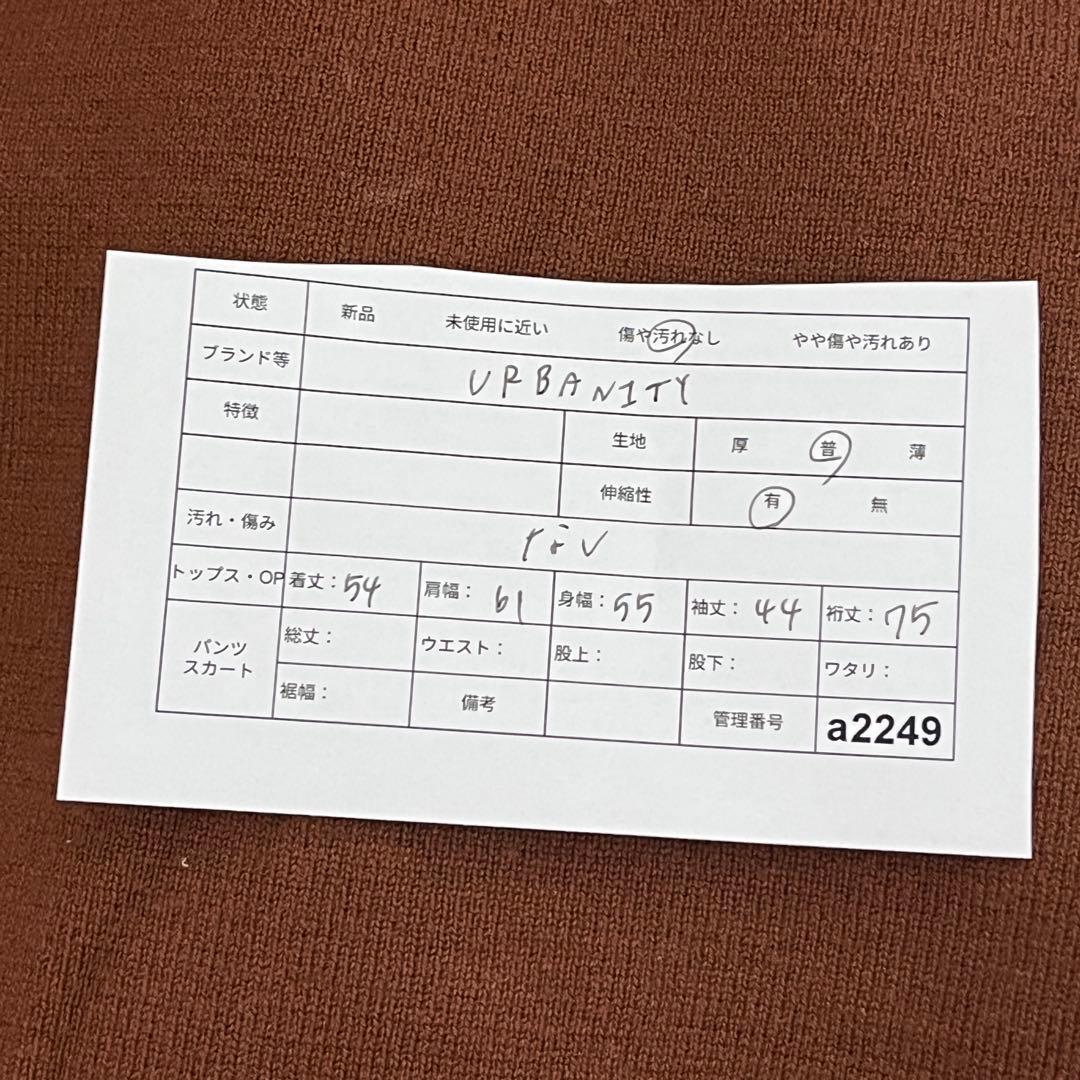 状態 新品 未使用に近い 傷や汚れなし やや傷や汚れあり
ブランド等 URBANITY
特徴 生地 厚 普 薄
伸縮性 有 無
汚れ・傷み なし
トップス・OP 着丈：54 肩幅：61 身幅：55 袖丈：44 裄丈：75
パンツ スカート 総丈： ウエスト： 股上： 股下： ワタリ：
裾幅： 備考 管理番号 a2249